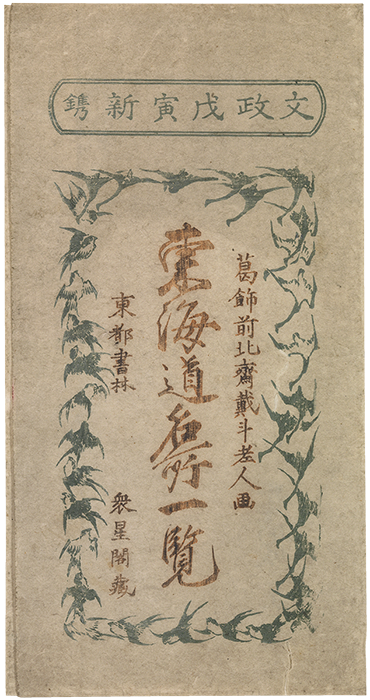 文政戊寅新鐫
葛飾前北齋戴斗老人画
東海道名所一覧
東都書林 衆星閣藏